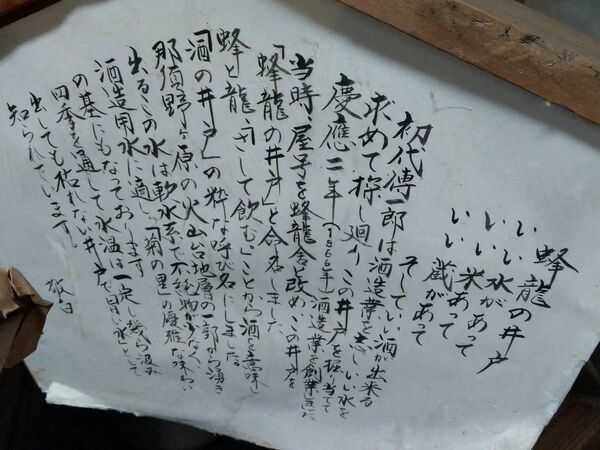 蜂龍の井戸
いい水があって
いい米あって
いい蔵があって
そしていい酒が出来る
初代傳一郎は酒造業を志しいい水を
求めて探し廻りこの井戸を掘り当てて
慶應二年(1866年)酒造業を創業した
当時、屋号を蜂龍舎と改めこの井戸を
「蜂龍の井戸」と命名しました
蜂と龍「さして飲む」ことから酒を意味し
「酒の井戸」の粋な呼び名にしました。
那須野ヶ原の火山台地層の一部から湧き
出るこの水は軟水系で不純物が少なく、
酒造用水に適し、「菊の里」の優雅な味わい
の基にもなっております。
四季を通して水温は一定し幾ら汲み
出しても枯れない井戸で目に水として
知られています。